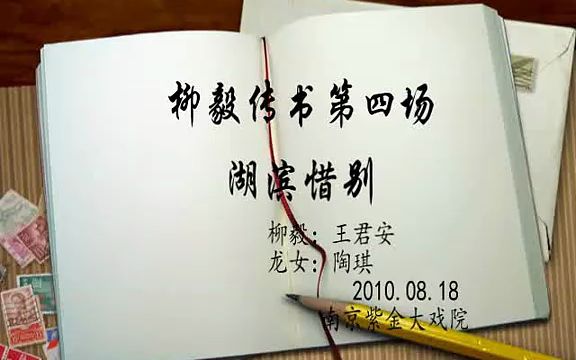 柳毅传书第四场
湖滨惜别
柳毅：王君安
龙女：陶琪
2010.08.18
南京紫金大戏院